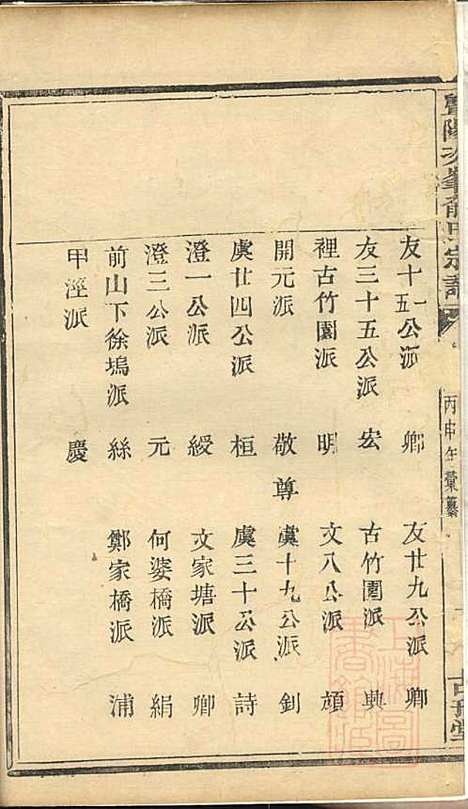 暨陽次峯俞氏宗譜
丙申年彙纂
古竹堂
友十一公派 卿 友廿九公派 卿
友三十五公派 宏 古竹園派 興
裡古竹園派 明 文八公派 頎
開元派 敬尊 虞十九公派 釗
虞廿四公派 桓 虞三十公派 詩
澄一公派 綬 文家塘派 卿
澄三公派 元 何婆橋派 絹
前山下徐塢派 絲 鄭家橋派 浦
甲滛派 慶